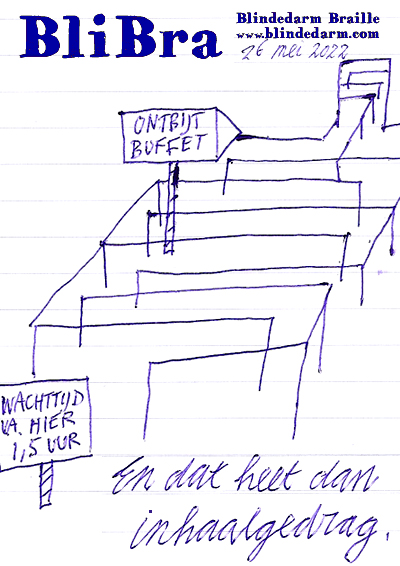 BliBra
Blindedarm Braille
www.blindedarm.com
26 mei 2022
ONTBIJT
BUFFET
WACHTTIJD
V.A. HIER
1,5 UUR
En dat heet dan
inhaalgedrag.